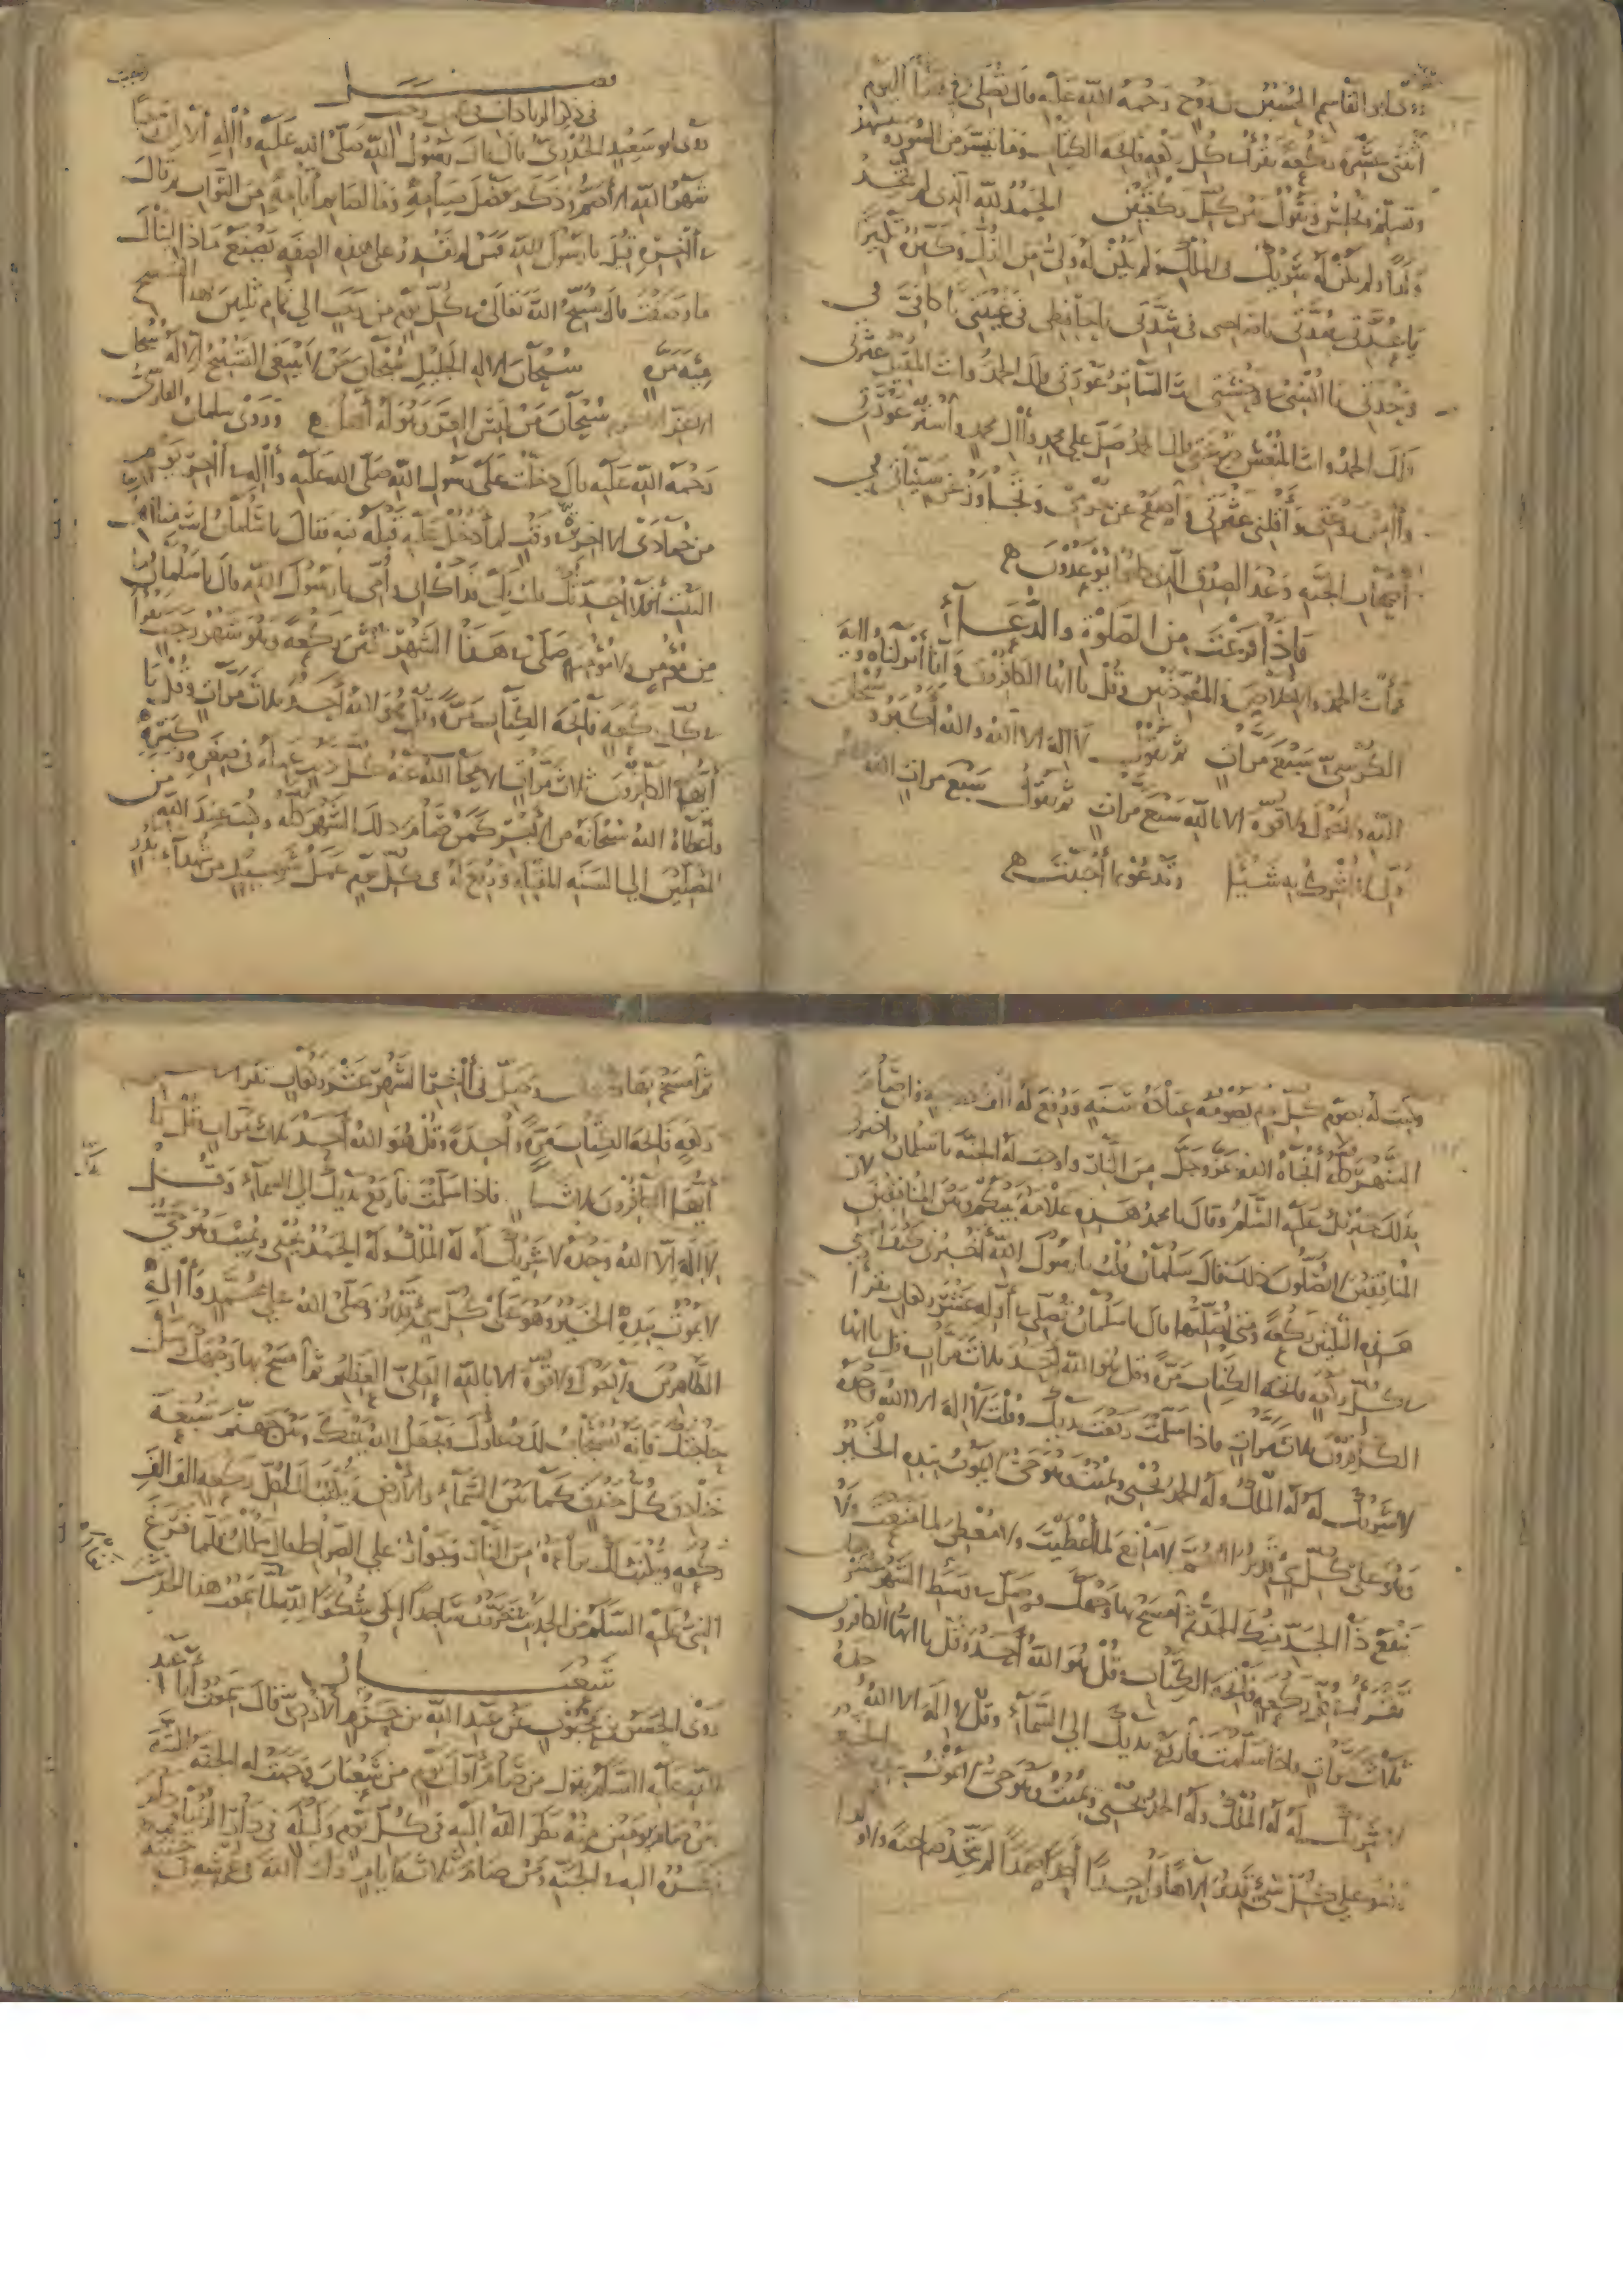 روى ابو القاسم الحسين بن روح رحمة الله عليه قال تصلى في هذا اليوم
اثنتى عشرة ركعة تقرأ في كل ركعة فاتحة الكتاب وما تيسر من السور وتتشهد
وتسلم وتجلس وتقول بين كل ركعتين الحمد لله الذى لم يتخذ
ولدا ولم يكن له شريك في الملك ولم يكن له ولي من الذل وكبره تكبيرا
يا عدتي في مدتي يا صاحبي في شدتي يا حافظي في غيبتي يا كافي في
وحدتي يا انسي في وحشتي انت الساتر عورتي فلك الحمد وانت المقيل عثرتي
فلك الحمد وانت المنعش صرعتي فلك الحمد صل على محمد وآل محمد واستر عورتي
وآمن روعتي وأقلني عثرتي واصفح عن جرمي وتجاوز عن سيئاتي في
أصحاب الجنة وعد الصدق الذي كانوا يوعدون
فاذا فرغت من الصلوة والدعاء
قرأت الحمد والاخلاص والمعوذتين وقل يا ايها الكافرون وانا أنزلناه وآية
الكرسي سبع مرات ثم تقول لا اله الا الله والله أكبر و سبحان
الله ولا حول ولا قوة الا بالله سبع مرات ثم تقول سبع مرات الله الله
ربي لا أشرك به شيئا وتدعو بما أحببت
فصل
في ذكر الزيادات في رجب
روى ابو سعيد الخدري قال قال رسول الله صلى الله عليه وآله ألا ان رجبا
شهر الله الأصم وذكر فضل صيامه وما لصائم أيامه من الثواب ثم قال
في آخره قيل يا رسول الله فمن لم يقدر على هذه الصفة يصنع ماذا لينال
ما وصفت قال يسبح الله تعالى في كل يوم من رجب الى تمام ثلثين بهذا التسبيح
مئة مرة سبحان الاله الجليل سبحان من لا ينبغي التسبيح الا له سبحان
الاعز الاكرم سبحان من لبس العز وهو له أهل وروى سلمان الفارسي
رحمة الله عليه قال دخلت على رسول الله صلى الله عليه وآله في آخر يوم
من جمادى الاخرة في وقت لم أدخل عليه قبله فيه فقال يا سلمان انت منا أهل
البيت أفلا أحدثك قلت بلى فداك ابي وأمي يا رسول الله قال يا سلمان ما
من مؤمن ولا مؤمنة صلى في هذا الشهر ثلثين ركعة وهو شهر رجب يقرأ
في كل ركعة فاتحة الكتاب مرة وقل هو الله أحد ثلاث مرات وقل يا
أيها الكافرون ثلاث مرات الا محا الله عنه كل ذنب عمله في صغره وكبره
وأعطاه الله سبحانه من الأجر كمن صام ذلك الشهر كله وكتب عند الله من
المصلين الى السنة المقبلة ورفع له في كل يوم عمل شهيد من شهداء بدر
وكتب له بصوم كل يوم يصومه عبادة سنة ورفع له ألف درجة فان صام
الشهر كله أنجاه الله عز وجل من النار وأوجب له الجنة يا سلمان أخبرني
بذلك جبرئيل عليه السلام وقال يا محمد هذه علامة بينكم وبين المنافقين لأن
المنافقين لا يصلون ذلك فقال سلمان قلت يا رسول الله أخبرني كيف أصلي
هذه الثلثين ركعة ومتى أصليها قال يا سلمان تصلي في أوله عشر ركعات تقرأ
في كل ركعة فاتحة الكتاب مرة وقل هو الله أحد ثلاث مرات وقل يا ايها
الكافرون ثلاث مرات فاذا سلمت رفعت يديك وقلت لا اله الا الله وحده
لا شريك له له الملك وله الحمد يحيى ويميت وهو حي لا يموت بيده الخير
وهو على كل شيء قدير اللهم لا مانع لما أعطيت ولا معطى لما منعت ولا
ينفع ذا الجد منك الجد ثم امسح بها وجهك وصل في وسط الشهر عشر ركعات
تقرأ في كل ركعة فاتحة الكتاب وقل هو الله أحد وقل يا ايها الكافرون
ثلاث مرات فاذا سلمت فارفع يديك الى السماء وقل لا اله الا الله وحده
لا شريك له له الملك وله الحمد يحيى ويميت وهو حي لا يموت بيده الخير
وهو على كل شيء قدير الها واحدا أحدا صمدا لم يتخذ صاحبة ولا ولدا
ثم امسح بها وجهك وصل في آخر الشهر عشر ركعات تقرأ في
ركعة فاتحة الكتاب مرة واحدة وقل هو الله أحد ثلاث مرات وقل يا
أيها الكافرون ثلاثا فاذا سلمت فارفع يديك الى السماء وقل
لا اله الا الله وحده لا شريك له له الملك وله الحمد يحيى ويميت وهو حي
لا يموت بيده الخير وهو على كل شيء قدير وصلى الله على محمد وآله
الطاهرين ولا حول ولا قوة الا بالله العلي العظيم ثم امسح بها وجهك وسل
حاجتك فانه يستجاب لك دعاؤك ويجعل الله بينك وبين جهنم سبعة
خنادق كل خندق كما بين السماء والأرض ويكتب لك بكل ركعة ألف ألف
ركعة ويكتب لك براءة من النار وجواز على الصراط قال سلمان فلما فرغ
النبي عليه السلام من الحديث خررت ساجدا ابكي شكرا لله لما سمعت هذا الحديث
شعبان
روى الحسن بن محبوب عن عبد الله بن حزم الأزدي قال سمعت أبا عبد
الله عليه السلام يقول من صام أول يوم من شعبان وجبت له الجنة البتة
ومن صام يومين منه نظر الله اليه في كل يوم وليلة في دار الدنيا ودام
نظره اليه في الجنة ومن صام ثلاثة أيام زار الله في عرشه في جنته